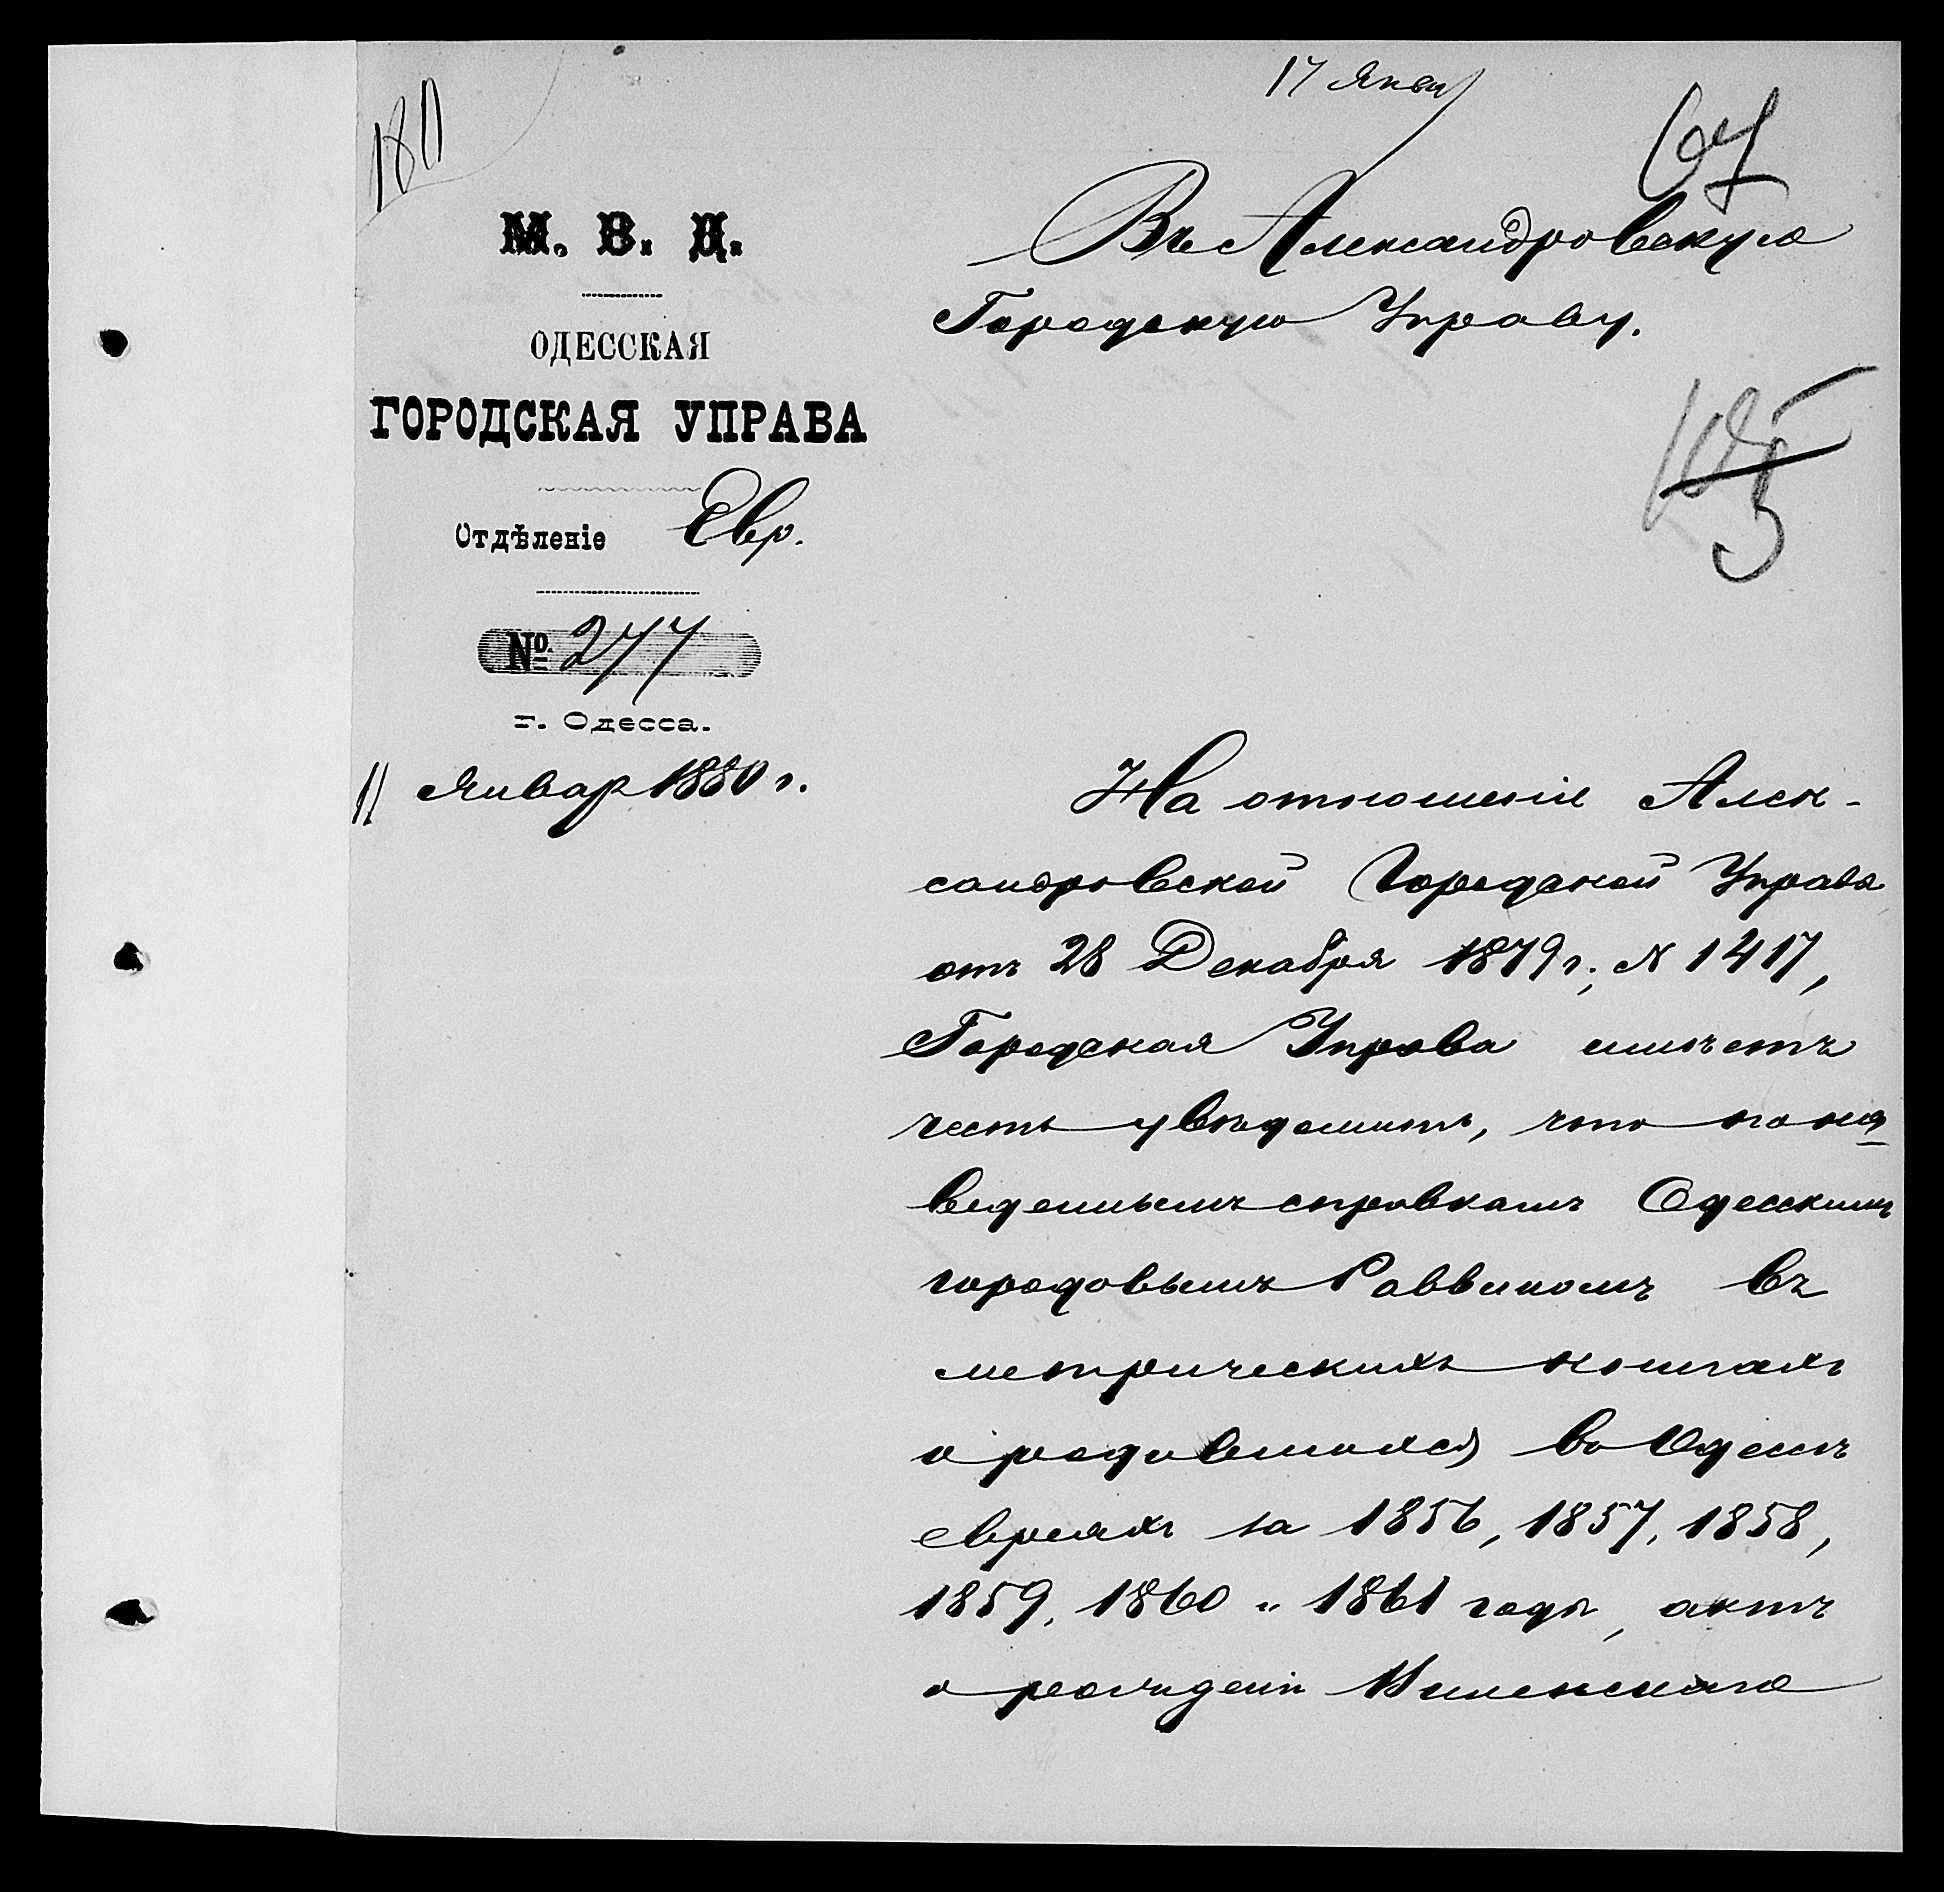 17 Янв
180
67
М. В. Д.
ОДЕССКАЯ
ГОРОДСКАЯ УПРАВА
Отдѣленіе Евр.
№ 277
г. Одесса.
11 Январ 1880 г.
Въ Александровскую
Городскую Управу.
5
На отношеніе Алек-
сандровской Городской Управы
отъ 28 Декабря 1879 г., N 1417,
Городская Управа имѣетъ
честь увѣдомить, что по на
веденнымъ справкамъ Одесскимъ
городовымъ Раввиномъ въ
метрическихъ книгахъ
о родившихся въ Одессѣ
евреяхъ за 1856, 1857, 1858,
1859, 1860 и 1861 годы, актъ
о рожденіи Виленскаго